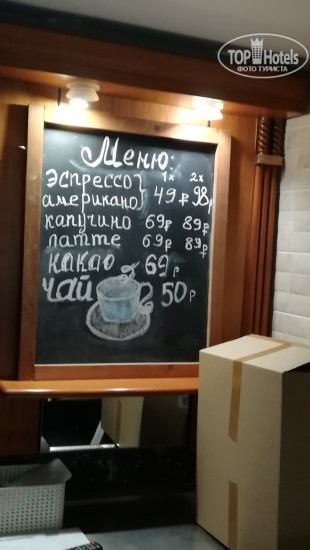 TOP Hotels
ФОТО ТУРИСТА
Меню:
1x 2x
эспрессо}
американо} 49 ₽ 98₽
капучино 69₽ 89₽
латте 69₽ 89₽
какао 69₽
чай 50₽